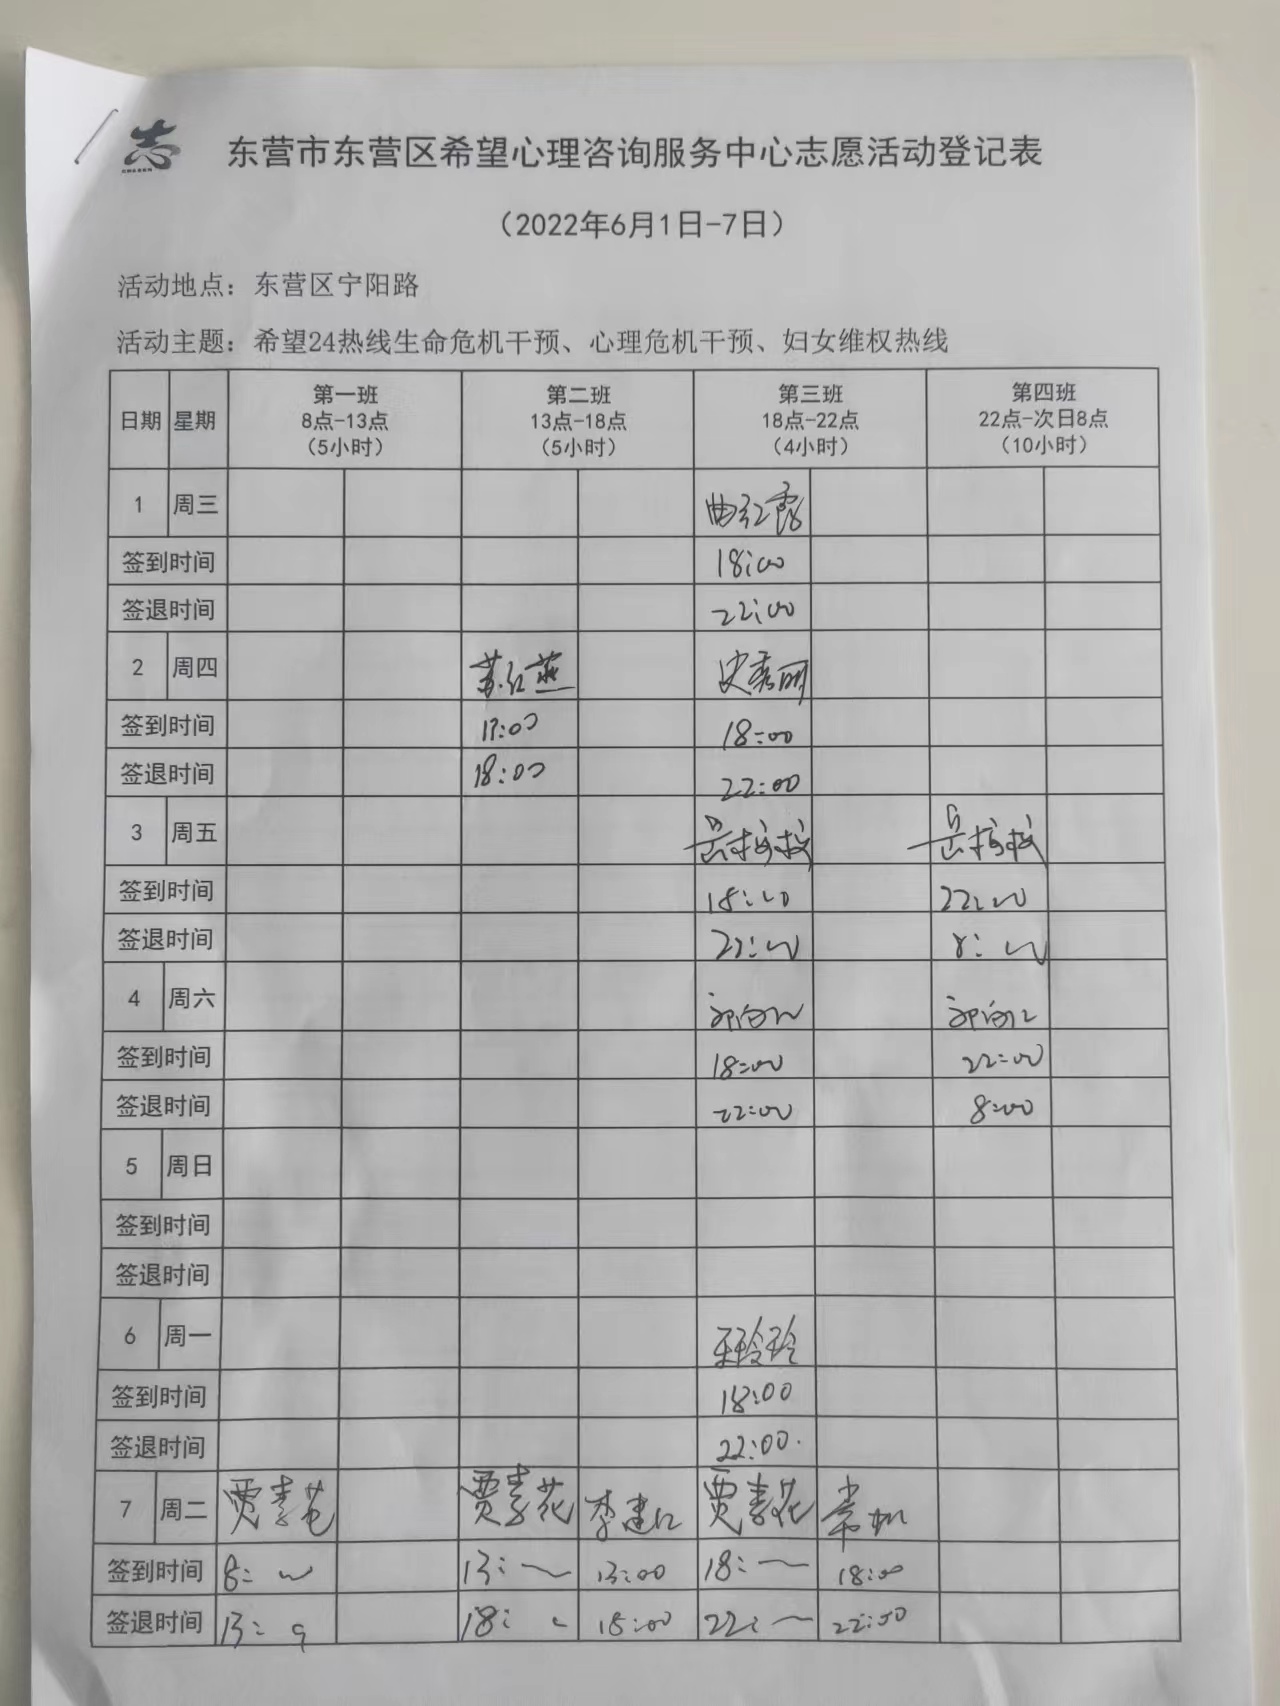 志
东营市东营区希望心理咨询服务中心志愿活动登记表
（2022年6月1日-7日）
活动地点：东营区宁阳路
活动主题：希望24热线生命危机干预、心理危机干预、妇女维权热线
日期 星期 第一班 8点-13点 （5小时） 第二班 13点-18点 （5小时） 第三班 18点-22点 （4小时） 第四班 22点-次日8点 （10小时）
1 周三 曲红霞
签到时间 18:00
签退时间 22:00
2 周四 苏红燕 史秀丽
签到时间 13:00 18:00
签退时间 18:00 22:00
3 周五
签到时间 18:00 22:00
签退时间 22:00 8:00
4 周六
签到时间 18:00 22:00
签退时间 22:00 8:00
5 周日
签到时间
签退时间
6 周一 王玲玲
签到时间 18:00
签退时间 22:00
7 周二 贾素花 贾素花 李建江 贾素花
签到时间 8: 13: 13:00 18: 18:00
签退时间 13: 18: 18:00 22: 22:00